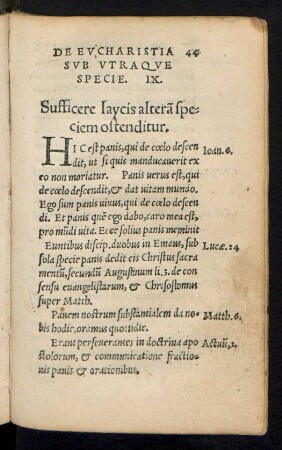 DE EVCHARISTIA 44
SVB VTRAQVE
SPECIE. IX.
Sufficere laycis alterā spe-
ciem ostenditur.
HIC est panis, qui de cœlo descen Ioan. 6.
dit, ut si quis manducauerit ex
eo non moriatur. Panis uerus est, qui
de cœlo descendit, & dat uitam mundo.
Ego sum panis uiuus, qui de cœlo descen
di. Et panis quē ego dabo, caro mea est,
pro mūdi uita. Ecce solius panis meminit
Euntibus discip. duobus in Emaus, sub Lucæ. 24
sola specie panis dedit eis Christus sacra
mentū, secundū Augustinum li. 3. de con
sensu euangelistarum, & Chrysostomus
super Matth.
Panem nostrum substantialem da no- Matth. 6.
bis hodie, oramus quotidie.
Erant perseuerantes in doctrina apo Actuū, 2.
stolorum, & communicatione fractio-
nis panis & orationibus.